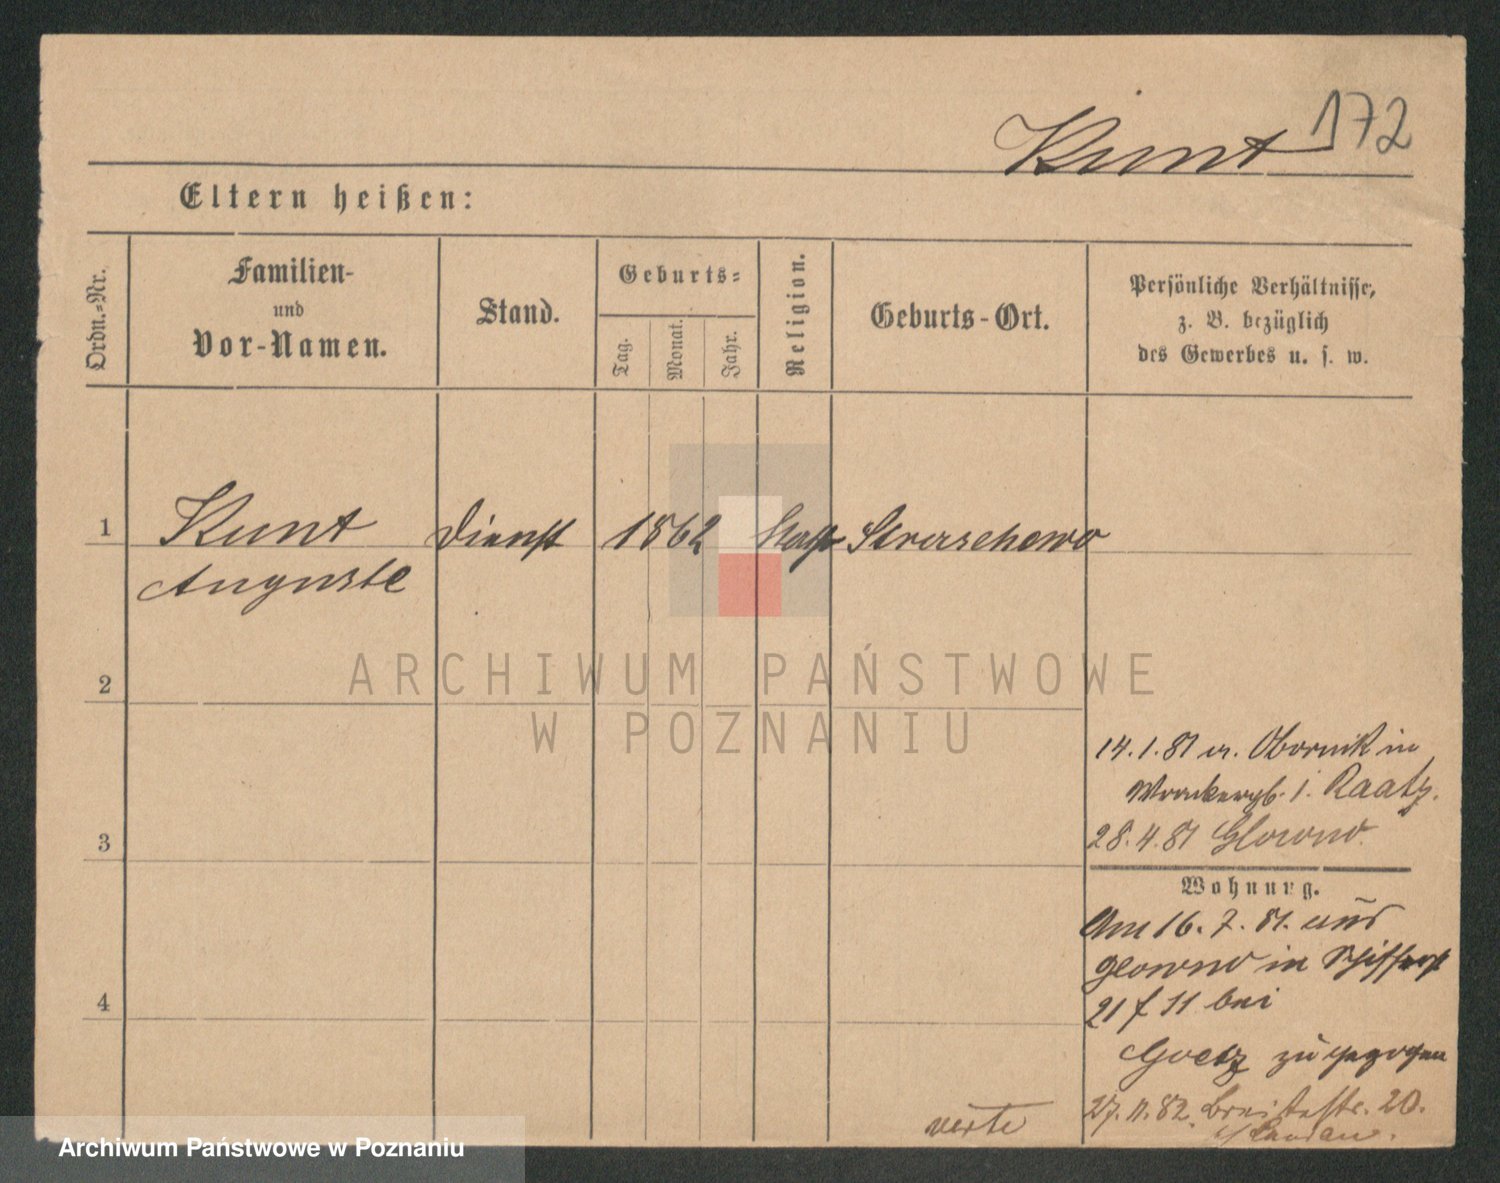 Kunt 172
Eltern heißen:
Ordn.-Nr.
Familien-
und
Vor-Namen.
Stand.
Geburts-
Tag.
Monat.
Jahr.
Religion.
Geburts-Ort.
Persönliche Verhältnisse,
z. B. bezüglich
des Gewerbes u. s. w.
1 Kunt Dienst 1862 Straschewo
Auguste
2
ARCHIWUM PAŃSTWOWE
W POZNANIU
14.1.81 Obornik in
i. Raatz.
3
28.4.81 Glowno.
Wohnung.
Am 16.7.81. aus
Glowno in
4
21 f 11 bei
Goetz zugezogen
27.11.82. Breitestr. 20.
verte
Archiwum Państwowe w Poznaniu